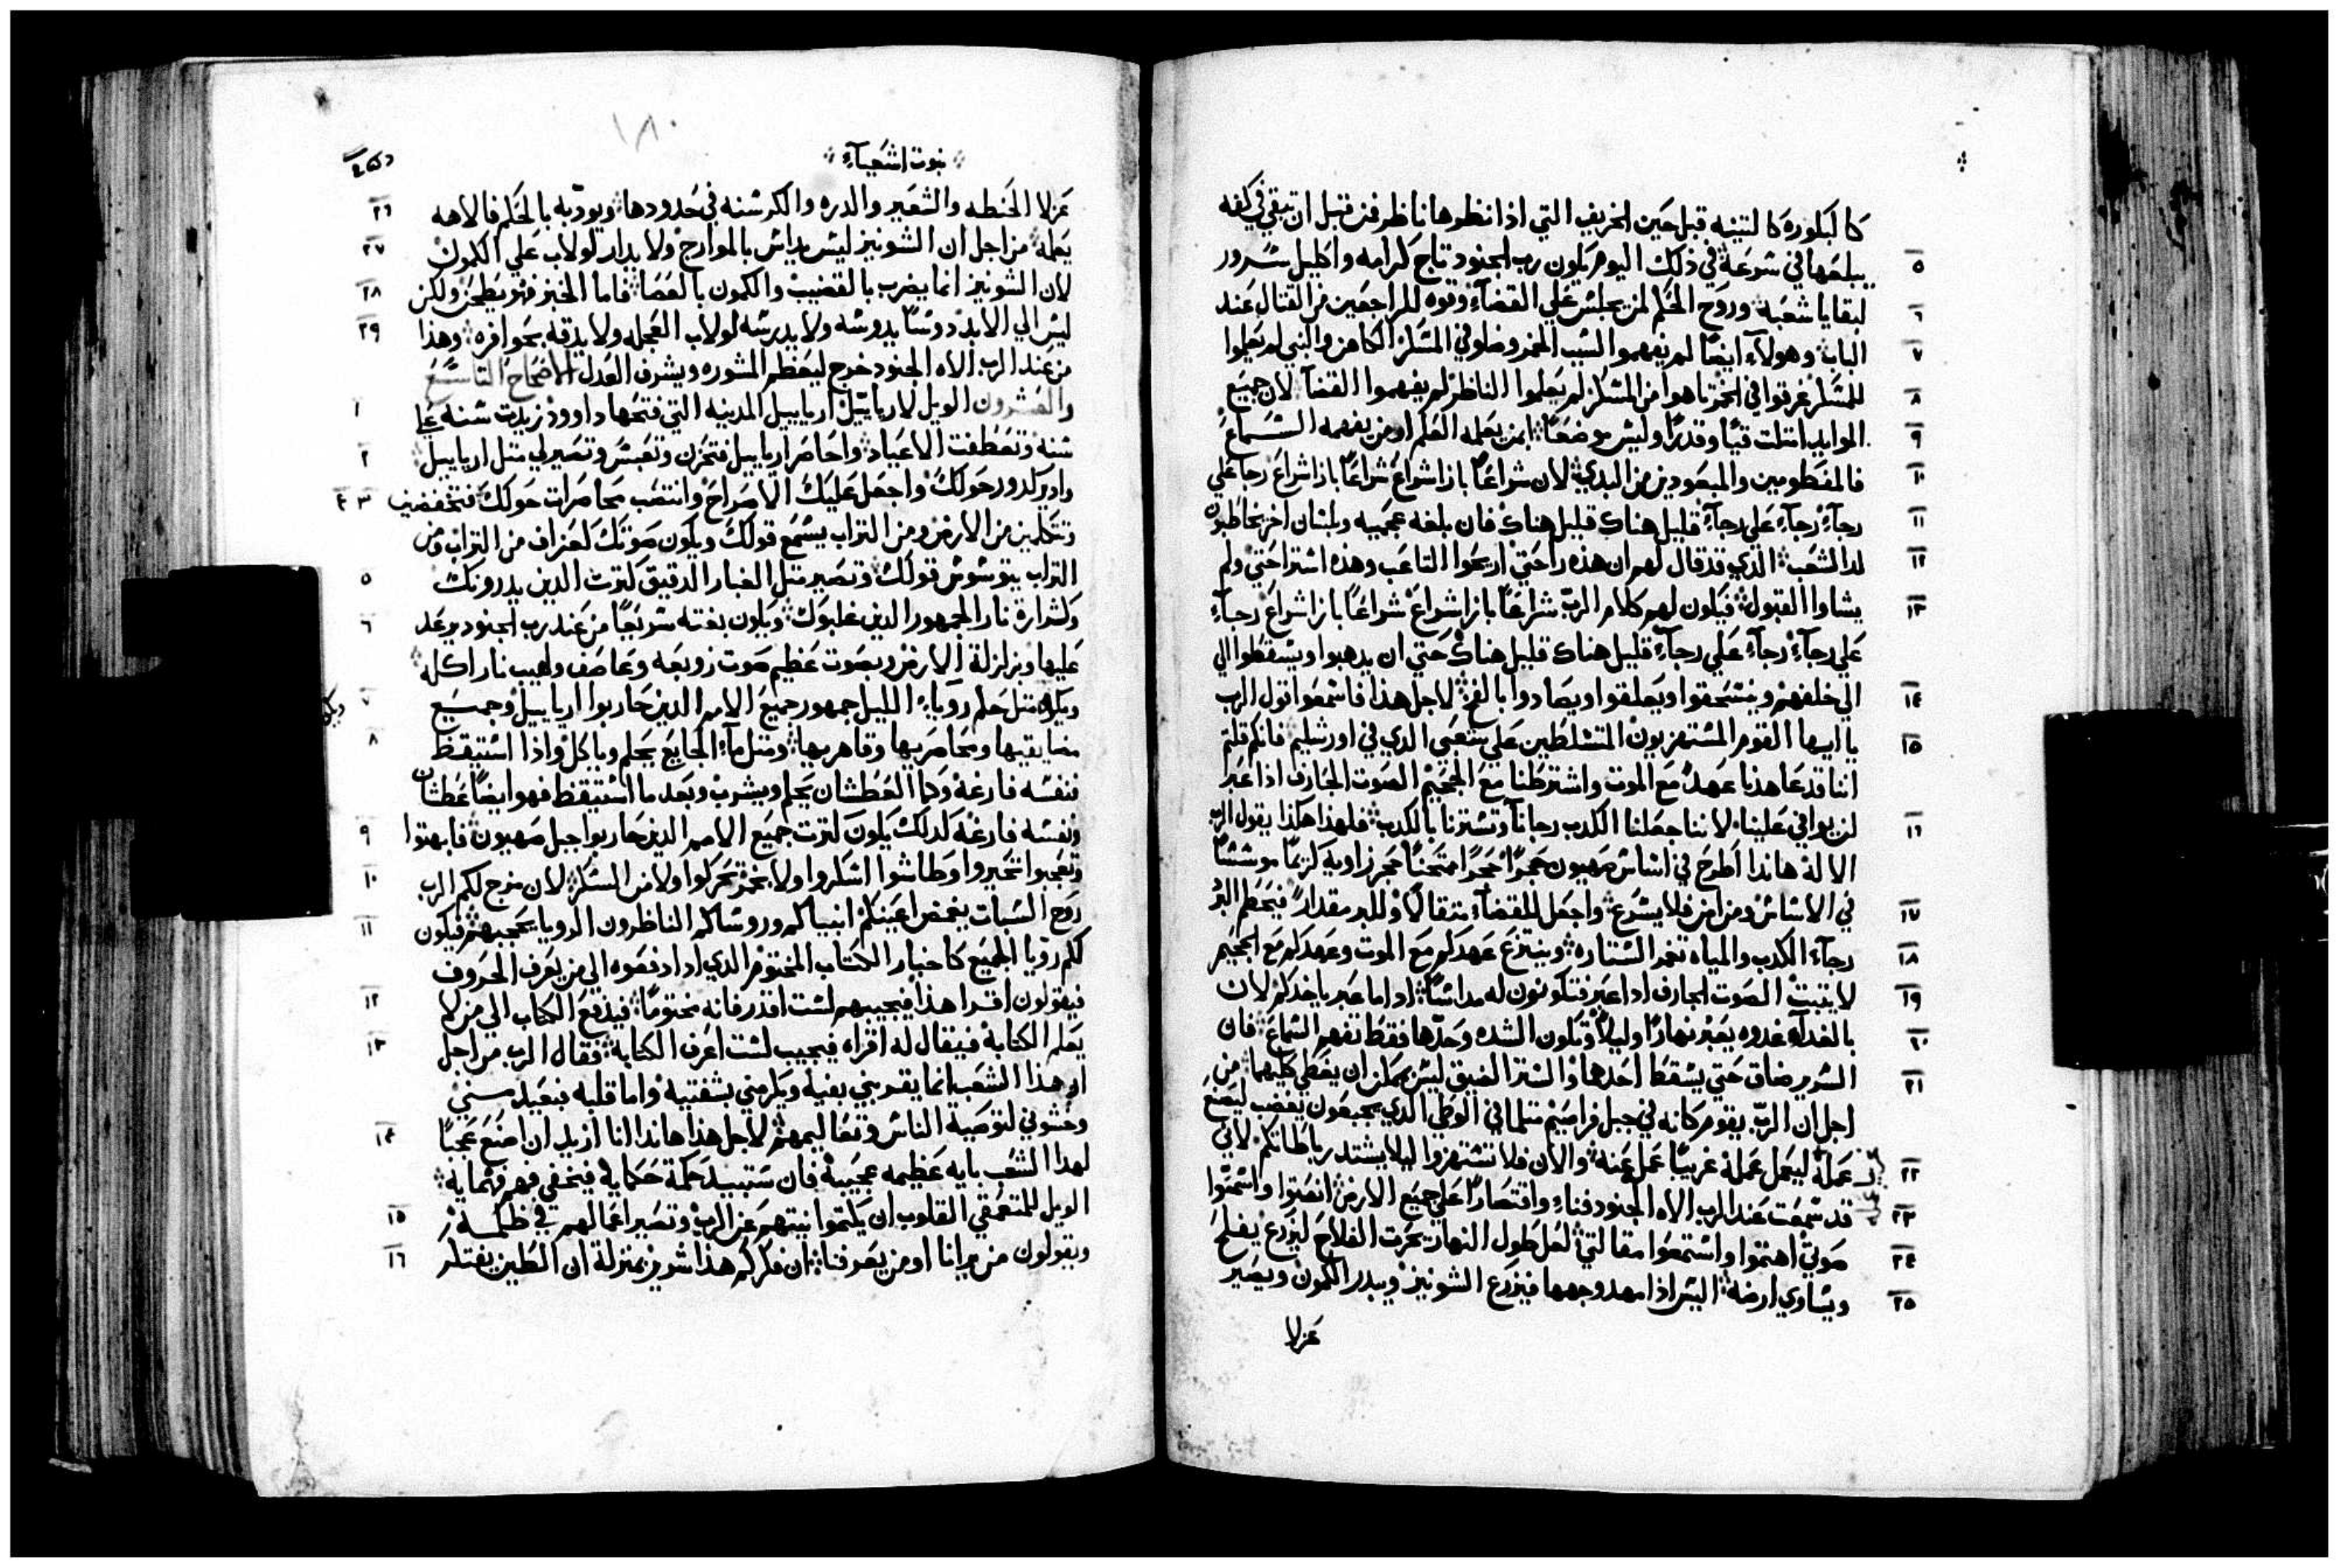 كالبكوره كالتينه قبل حين الخريف التي اذا نظرها ناظر فمن قبل ان تبقي في كفه
٥ يبلعها في سرعة في ذلك اليوم يكون رب الجنود تاج كرامه واكليل سرور
٦ لبقايا شعبه وروح الحكم لمن يجلس علي القضآء وقوه للراجعين من القتال عند
٧ الباب وهولآء ايضًا لم يفهموا السبب الخمر وضلوا في المسكر الكاهن والنبي لم يعلموا
٨ للمسكر غرقوا في الخمر تاهوا من المسكر لم يعلموا الناظر لم يفهموا القضآ لان جميع
٩ الموايد امتلت قيًا وقدرًا وليس موضعًا لمن يعلمه العلم او من يفهمه السماع
١٠ فالمفطومين والمبعودين من التدي لان شراعًا بازا شراع شراعًا بازا شراع رجآ علي
١١ رجآء رجآء علي رجآء قليل هناك قليل هناك فان بلغه عجميه وبلسان اخر يخاطبوه
١٢ لدا الشعب الذي قد قال لهم ان هذه راحتي اريحوا التاعب وهذه استراحتي ولم
١٣ يشاوا القبول فيكون لهم كلام الربّ شراعًا بازا شراع شراعًا بازا شراع رجآء
علي رجآء رجآء علي رجآء قليل هناك قليل هناك حتي ان يدهبوا ويسقطوا الي
١٤ الي خلفهم وينسحقوا ويعلقوا ويصادوا بالفخ لاجل هذا فاسمعوا قول الرب
١٥ يا ايها القوم المستهزيون المتسلطين علي شعبي الدي في اورشليم فانكم قلتم
اننا قد عاهدنا عهدًا مع الموت واشترطنا مع الجحيم الصوت الجارف اذا عبر
١٦ لن يوافي علينا لاننا جعلنا الكدب رجانا وتسترنا بالكدب فلهذا هكذا يقول الرب
الاله هاندا اطرح في اساس صهيون حجرًا حجرًا ممتحنًا حجر زاوية كريمًا موسسًا
١٧ في الاساس ومن امن فلا يسرع واجعل للقضآء متقالًا وللبر مقدارًا فيحطم البرد
١٨ رجآء الكدب والمياه تغمر الستاره وينتزع عهدكم مع الموت وعهدكم مع الجحيم
١٩ لا يتبت الصوت الجارف اذا عبر فتكونون له مداسًا اذ اما عبر ياخدكم لان
٢٠ بالغداه غدوه يعبر نهارًا وليلًا وتكون الشده وحدها فقط تفهم السماع فان
٢١ السرير ضاق حتي يسقط احدهما والستر الضيق ليس يمكن ان يغطي كليهما من
اجل ان الربّ يقوم كانه في جبل فراصيم متلما في الوطي الدي بجبعون يغضب ليصنع
٢٢ عمله ليعمل عمله غريبًا عمل عنه والان فلا تستهزوا ليلا يشتد رباطاتكم لاني
٢٣ قد سمعت عند الرب الاه الجنود فناء واقتصارًا علي جميع الارض انصتوا واسمعوا
٢٤ صوتي اهتموا واستمعوا مقالتي لعل طول النهار يحرت الفلاح ليزرع يفلح
٢٥ ويساوي ارضه اليس اذا مهد وجهها فيزرع الشونيز ويبدر الكمون ويصير
عزلا
١٨٠
نبوت اشعيآء
عزلا الحنطه والشعير والدره والكرسنه في حدودها ويودبه بالحكم فالاهه ٢٦
يعلمه من اجل ان الشونيز ليس يداس بالموارج ولا يدار لولاب علي الكمون ٢٧
لان الشونيز انما يضرب بالقضيب والكمون بالعصا فاما الخبز فهو يطحن ولكن ٢٨
ليس الي الابد دوسًا يدوسه ولا يدرسه لولاب العجله ولا يدقه بحوافره وهذا ٢٩
من عند الرب الاه الجنود خرج ليعظم المشوره ويشرف العدل الاصحاح التاسع
والعشرون الويل لارياييل ارياييل المدينه التي فتحها داوود زيدت سنه علي ١
سنه وتعطفت الاعياد واحاصر ارياييل فتحزن وتعبس وتصير لي متل ارياييل ٢
وادير كدور حولك واجعل عليك الامراح وانتصب محاصرات حولك فتنخفضين ٣ ٤
وتتكلمين من الارض ومن التراب يسمع قولك ويكون صوتك كعزاف من التراب ومن
التراب يتوشوش قولك وتصير متل الغبار الدقيق كترت الدين يدرونك ٥
وكشرارة نار الجمهور الدين غلبوك ويكون بغته سريعًا من عند رب الجنود يرعد ٦
عليها وبزلزلة الارض وبصوت عظيم صوت زوبعه وعاصف ولهيب نار اكله
ويكون متل حلم روياء الليل جمهور جميع الامم الدين حاربوا ارياييل وجميع ٧
مضايقيها ومحاصريها وقاهريها ومتل مآء الجايع يحلم وياكل واذا استيقظ ٨
فنفسه فارغه وكما العطشان يحلم ويشرب وبعد ما استيقظ فهو ايضًا عطشان
ونفسه فارغه كدلك يكون كترت جميع الامم الدين حاربوا جبل صهيون فابهتوا ٩
وتعجبوا تحيروا وطاشوا اسكروا ولا بخمر تحركوا ولا من المسكر لان مزج لكم الرب ١٠
روح السبات يغمض اعينكم انبياكم وروساكم الناظرون الرويا يحجبهم فيكون ١١
لكم رويا الجميع كاخبار الكتاب المختوم الدي اذا دفعوه الي من يعرف الحروف
فيقولون اقرا هذا فيجيبهم لست اقدر فانه مختومًا فيدفع الكتاب الي من لا ١٢
يعلم الكتابة فيقال له اقراه فيجيب لست اعرف الكتابة فقال الرب من اجل ١٣
ان هذا الشعب انما يقترب بي بفيه ويكرمني بشفتيه واما قلبه فبعيد مني
وخشوني لتوصية الناس وتعاليمهم لاجل هذا هاندا انا ازيد ان اصنع عجبًا ١٤
لهدا الشعب بايه عظيمه عجيبة فان ستبيد حكمة حكمايه فيختفي فهم فهمايه
الويل للمتعمقي القلوب ان يكتموا نيتهم عن الرب وتصير اعمالهم في ظلمة ١٥
ويقولون من يرانا او من يعرفنا ان فكركم هذا شرير بمنزلة ان الطين يفتكر ١٦